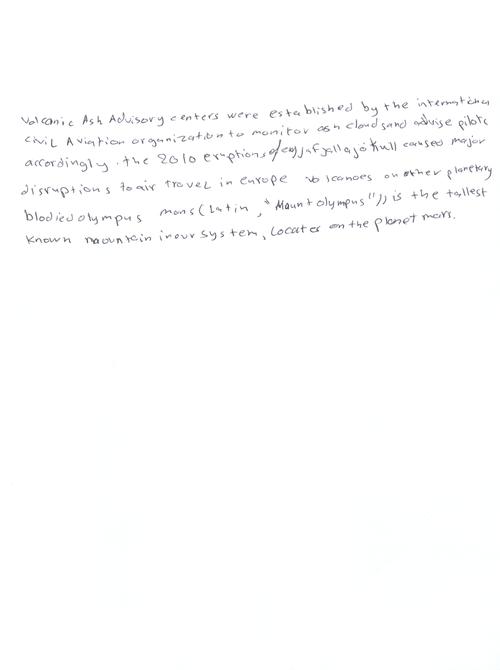 Volcanic Ash Advisory centers were established by the international
civil Aviation organization to monitor ash clouds and advise pilots
accordingly. the 2010 eruptions of eyjafjallajökull caused major
disruptions to air travel in europe volcanoes on other planetary
blodied olympus mons (Latin, "Mount olympus"), is the tallest
known mountain in our system, locates on the planet mars.